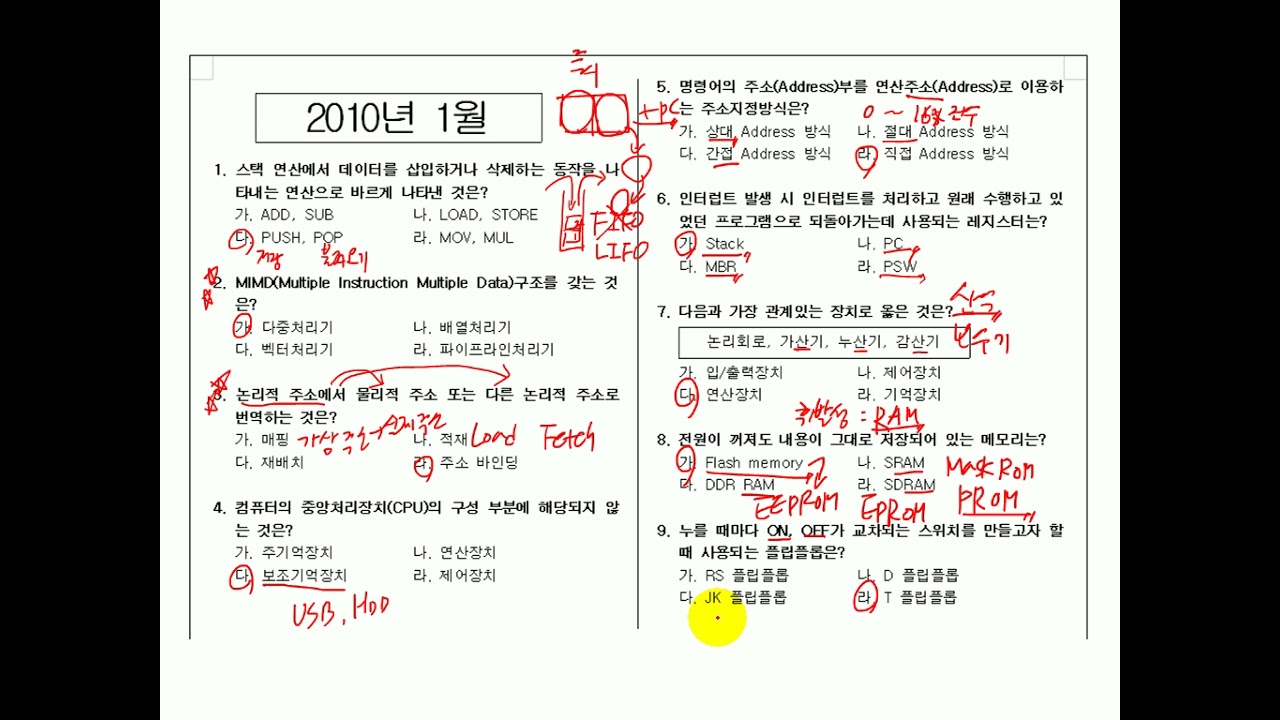 2010년 1월
1. 스택 연산에서 데이터를 삽입하거나 삭제하는 동작을 나
타내는 연산으로 바르게 나타낸 것은?
가. ADD, SUB 나. LOAD, STORE
다. PUSH, POP 라. MOV, MUL
저장 불러오기
FIFO
LIFO
2. MIMD(Multiple Instruction Multiple Data)구조를 갖는 것
은?
가. 다중처리기 나. 배열처리기
다. 벡터처리기 라. 파이프라인처리기
3. 논리적 주소에서 물리적 주소 또는 다른 논리적 주소로
번역하는 것은?
가. 매핑 가상주소→실제주소 나. 적재 Load Fetch
다. 재배치 라. 주소 바인딩
4. 컴퓨터의 중앙처리장치(CPU)의 구성 부분에 해당되지 않
는 것은?
가. 주기억장치 나. 연산장치
다. 보조기억장치 라. 제어장치
USB, HDD
+PC
5. 명령어의 주소(Address)부를 연산주소(Address)로 이용하
는 주소지정방식은? 0 ~ 16진수
가. 상대 Address 방식 나. 절대 Address 방식
다. 간접 Address 방식 라. 직접 Address 방식
6. 인터럽트 발생 시 인터럽트를 처리하고 원래 수행하고 있
었던 프로그램으로 되돌아가는데 사용되는 레지스터는?
가. Stack 나. PC
다. MBR 라. PSW
7. 다음과 가장 관계있는 장치로 옳은 것은?
논리회로, 가산기, 누산기, 감산기
보수기
가. 입/출력장치 나. 제어장치
다. 연산장치 라. 기억장치
휘발성 = RAM
8. 전원이 꺼져도 내용이 그대로 저장되어 있는 메모리는?
가. Flash memory 나. SRAM Mask ROM
다. DDR RAM 라. SDRAM PROM
EEPROM EPROM
9. 누를 때마다 ON, OFF가 교차되는 스위치를 만들고자 할
때 사용되는 플립플롭은?
가. RS 플립플롭 나. D 플립플롭
다. JK 플립플롭 라. T 플립플롭